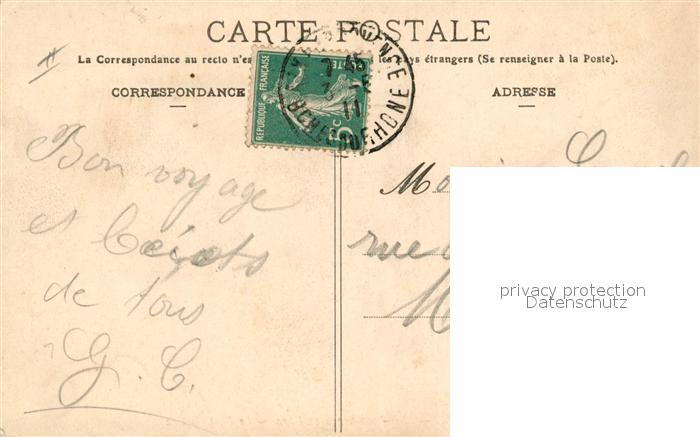 CARTE POSTALE
La Correspondance au recto n'es les pays étrangers (Se renseigner à la Poste).
CORRESPONDANCE
ADRESSE
REPUBLIQUE FRANÇAISE
POSTES
5c
BCHES DU RHONE
Bon voyage
et
de tous
G. C.
rue
M
privacy protection
Datenschutz